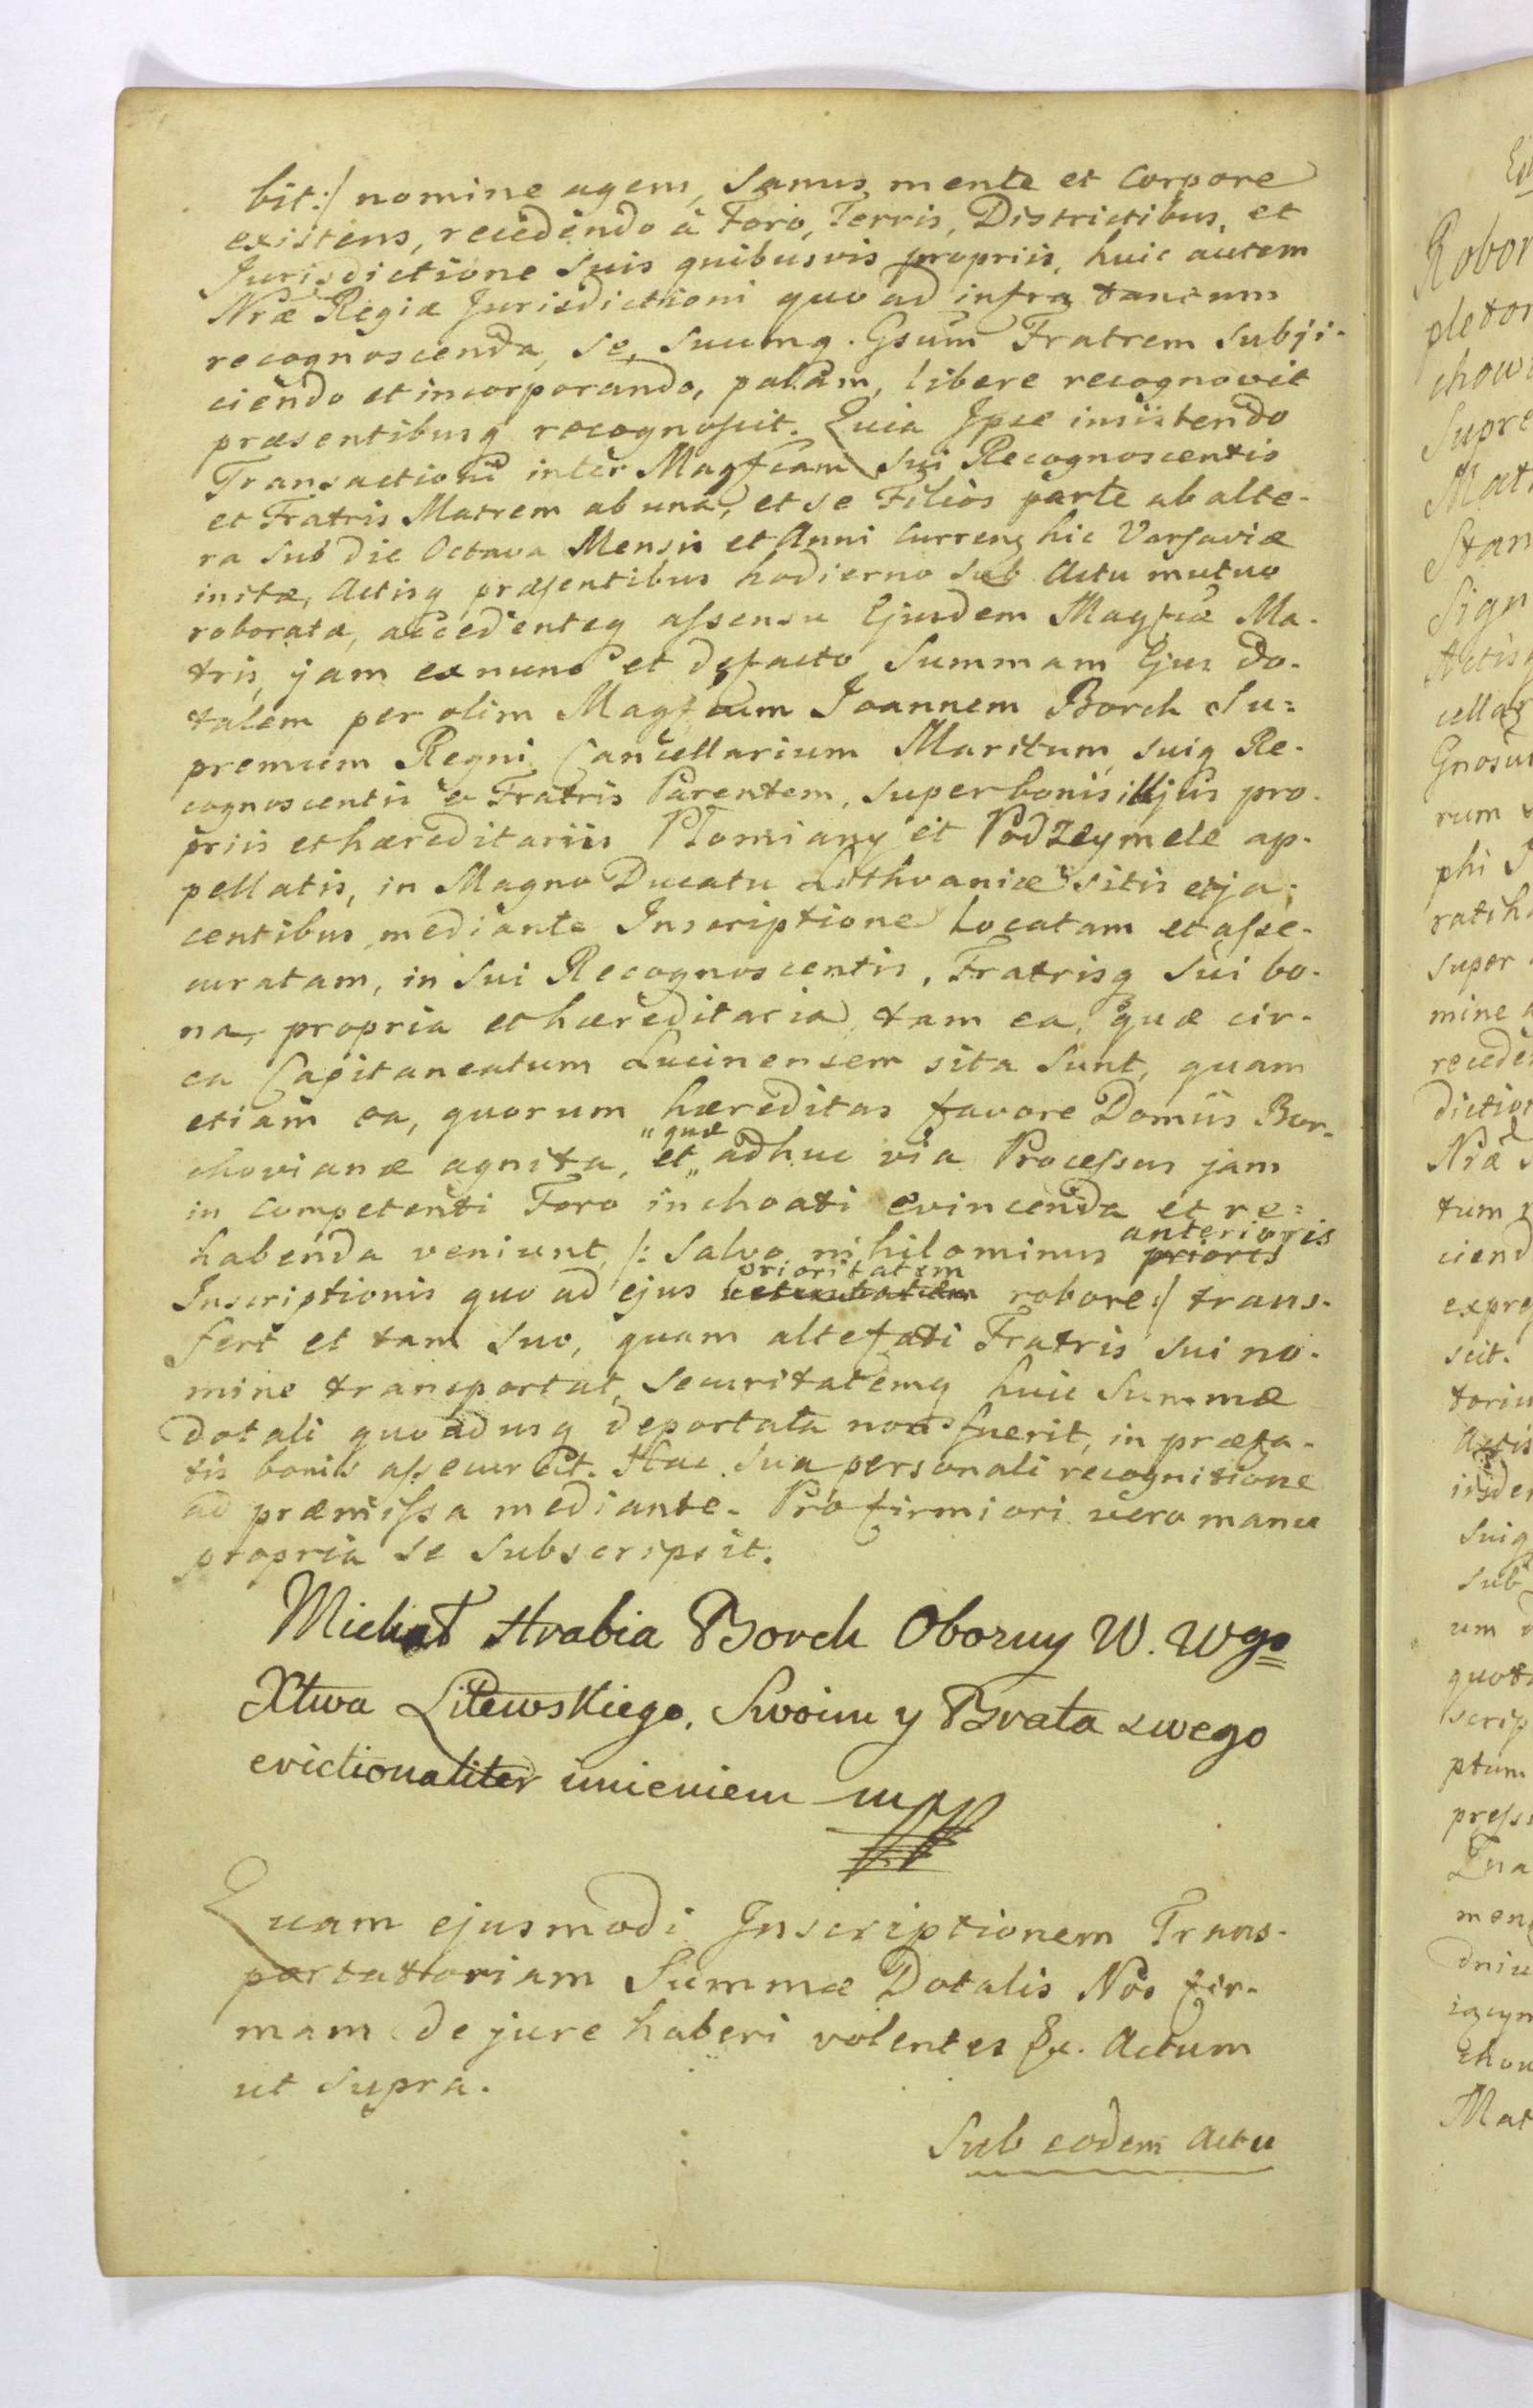 bit:/ nomine agens, Sanus mente et Corpore
existens, recedendo à Foro, Terris, Districtibus, et
Jurisdictione Suis quibusvis propriis, huic autem
Nræ Regiæ Jurisdictioni quo ad infra tantum
recognoscenda, se, Suumq. Gsum Fratrem Subji-
ciendo et incorporando, palam, libere recognovit
præsentibusq recognoscit. Quia Ipse insistendo
Transactioni inter Magfcam Sui Recognoscentis
et Fratris Matrem ab una, et se Filios parte ab alte-
ra Sub die Octava Mensis et Anni Curreng hic Varsaviæ
initæ, Actisq præsentibus hodierno sub Actu mutuo
roboratæ, accedenteq assensu Ejusdem Magfcæ Ma-
tris, jam ex nunc et defacto Summam Ejus do-
talem per olim Magfcum Joannem Borch Su=
premum Regni Cancellarium Maritum, suiq Re-
cognoscentis & Fratris Parentem, super bonis illjus pro-
priis et hæreditariis Plomiany et Podzeymele ap-
pellatis, in Magno Ducatu Lithvaniæ sitis et ja-
centibus, mediante Inscriptione Locatam et asse-
curatam, in Sui Recognoscentis, Fratrisq Sui bo-
na, propria et hæreditaria, tam ea, quæ cir-
ca Capitaneatum Lucinensem sita Sunt, quam
etiam ea, quorum hæreditas favore Domûs Bor-
"quæ
chovianæ agnita, et „ adhuc via Processus jam
in Competenti Foro inchoati evincenda et re=
anterioris
habenda veniunt, /: Salvo nihilominus prioris
prioritatem
Inscriptionis quo ad ejus robore:/ trans-
fert et tam Suo, quam altefati Fratris Sui no-
mine transportat, Securitatemq huic Summæ
dotali quoadusq deportata non fuerit, in præfa-
tis bonis assecurat. Hac Sua personali recognitione
ad præmissa mediante. Pro firmiori vero manu
propria se Subscripsit.
Michał Hrabia Borch Obozny W. Wgo
Xtwa Litewskiego, Swoim y Brata swego
evictionaliter imieniem mp
Quam ejusmodi Inscriptionem Trans-
portatoriam Summæ Dotalis Nos fir-
mam de jure haberi volentes &c. Actum
ut Supra.
Sub eodem Actu